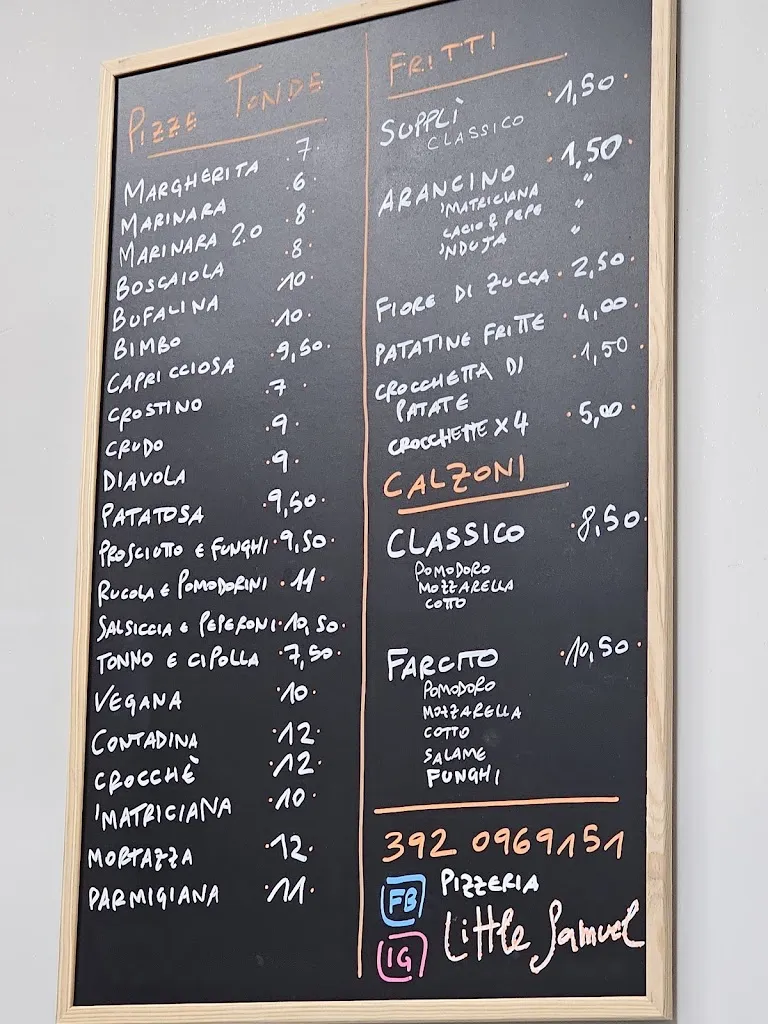 PIZZE TONDE
MARGHERITA .7.
MARINARA .6.
MARINARA 2.0 .8.
BOSCAIOLA .8.
BUFALINA .10.
BIMBO .10.
CAPRICCIOSA .9,50.
CROSTINO .7.
CRUDO .9.
DIAVOLA .9.
PATATOSA .9,50.
PROSCIUTTO E FUNGHI .9,50.
RUCOLA E POMODORINI .11.
SALSICCIA E PEPERONI .10,50.
TONNO E CIPOLLA .7,50.
VEGANA .10.
CONTADINA .12.
CROCCHÈ .12.
'MATRICIANA .10.
MORTAZZA .12.
PARMIGIANA .11.
FRITTI
SUPPLÌ .1,50.
CLASSICO
ARANCINO .1,50.
'MATRICIANA "
CACIO & PEPE "
'NDUJA "
FIORE DI ZUCCA .2,50.
PATATINE FRITTE .4,00.
CROCCHETTA DI .1,50.
PATATE
CROCCHETTE X 4 .5,00.
CALZONI
CLASSICO .8,50.
POMODORO
MOZZARELLA
COTTO
FARCITO .10,50.
POMODORO
MOZZARELLA
COTTO
SALAME
FUNGHI
392 0969151
FB PIZZERIA
IG Little Samuel